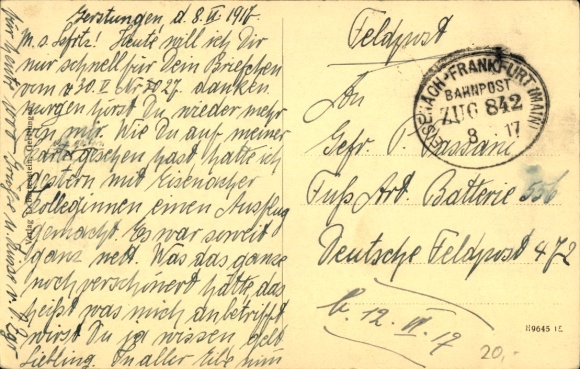 Gerstungen d. 8. VI 1917
M. s. Heute will ich Dir
nur schnell für Dein Briefchen
vom 30. V. Nr 27. danken.
Morgen hörst Du wieder mehr
von mir. Wie Du auf meiner
Karte gesehen hast hatte ich
gestern mit Eisenacher
Kolleginnen einen Ausflug
gemacht. Es war soweit
ganz nett. Was das ganze
noch verschönert hätte das
heißt was mich anbetrifft
wirst Du ja wissen gelt
Liebling. In aller Eile nun
für heute 1000 Grüße u. Küsse v. D.
Verlag
Gerstungen
Feldpost
An
Gefr. P. Bassani
Fuß Art. Batterie 556
Deutsche Feldpost 472
b. 12. VI. 17
EISENACH-FRANKFURT (MAIN)
BAHNPOST
ZUG 842
8 17
H9645
20,-